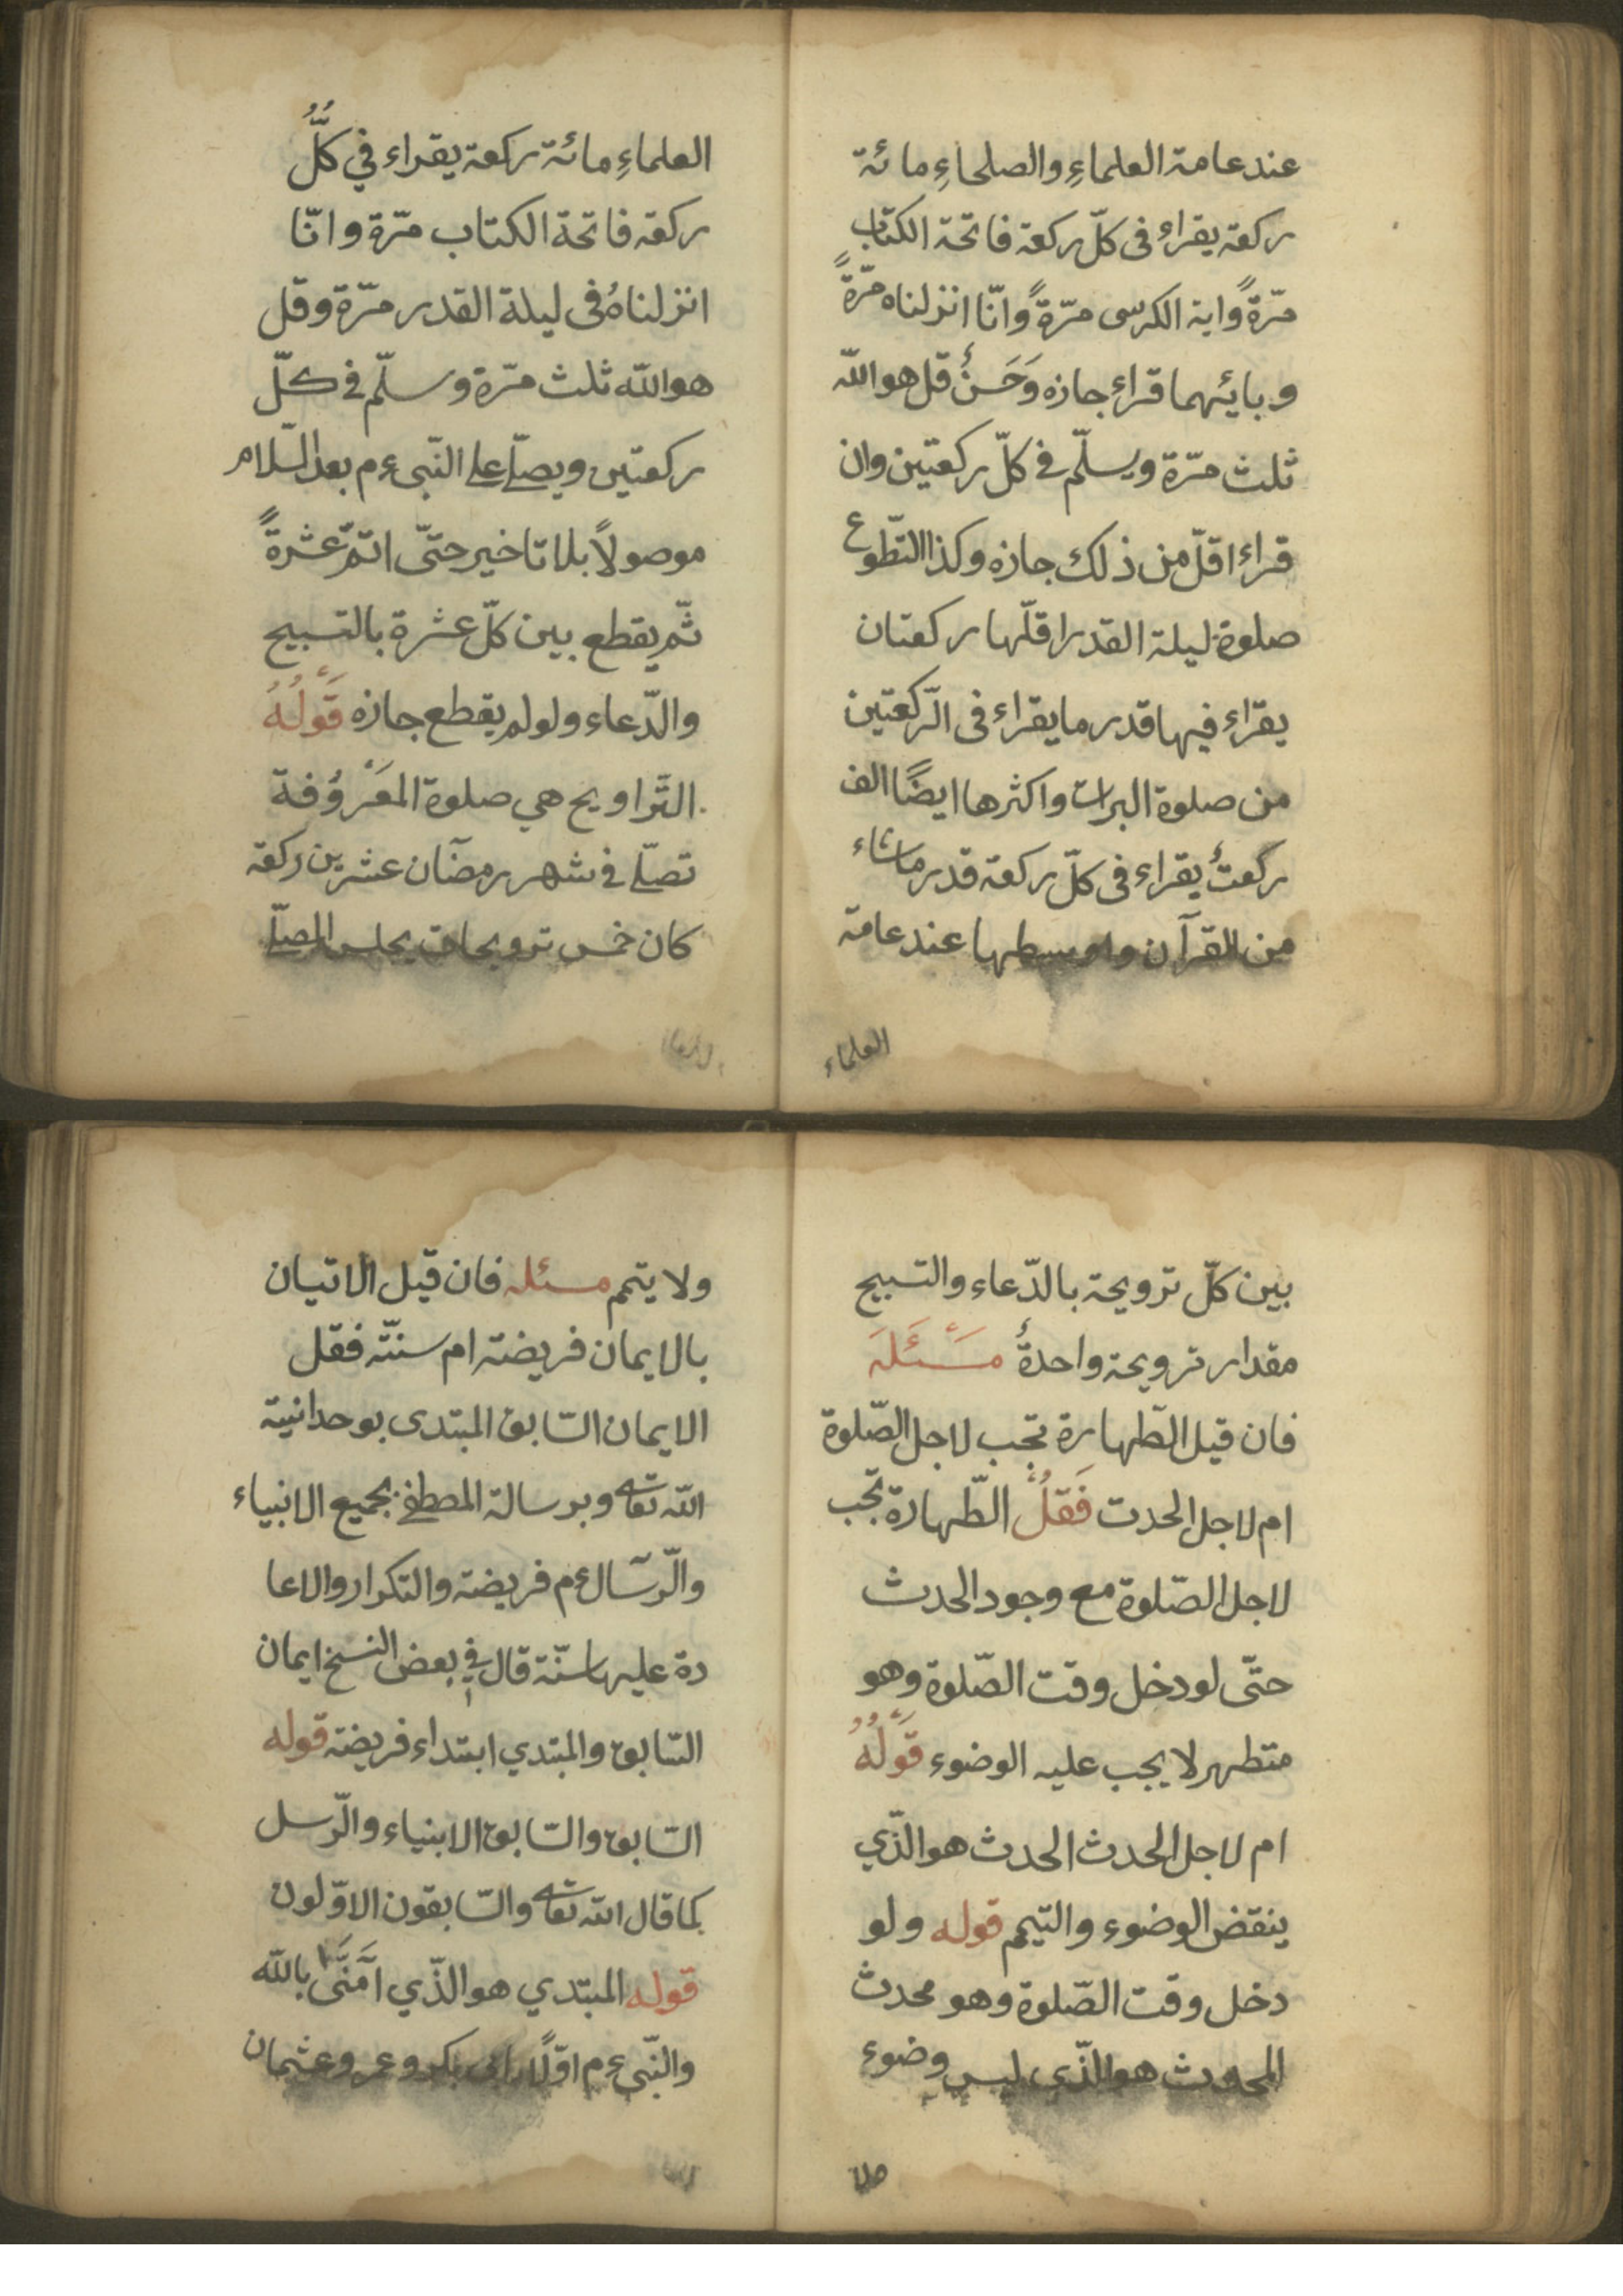 عند عامة العلماءِ والصلحاءِ مائة
ركعة يقراء فى كلّ ركعة فاتحة الكتاب
مرّةً واية الكرسى مرّةً وانّا انزلناه مرّةً
وبايّهما قراء جازه وَحَسَنٌ قل هو اللّه
ثلث مرّة ويسلّم فى كلّ ركعتين وان
قراء اقلّ من ذلك جازه وكذا التطّوع
صلوة ليلة القدر اقلّها ركعتان
يقراء فيها قدر ما يقراء فى الرّكعتين
من صلوة البرات واكثرها ايضًا الف
ركعتٌ يقراء فى كلّ ركعة قدر ماشاء
من القرآن واوسطها عند عامة
العلماء
العلماءِ مائة ركعة يقراء في كلُّ
ركعة فاتحة الكتاب مرّة وانّا
انزلناهُ فى ليلة القدر مرّة وقل
هو اللّه ثلث مرّة وسلّم فى كلّ
ركعتين ويصلّے علے النّبىءم بعد السّلام
موصولاً بلا تاخير حتّى اتمّ عشرةً
ثّم يقطع بين كلّ عشرة بالتسبيح
والدّعاء ولو لم يقطع جازه قَوْلُهُ
التّراويح هي صلوة المَعْرُوُفة
تصلّے فى شهر رمضآن عشرين ركعة
كان خمس ترويحات يجلس المصلّے
بين كلّ ترويحة بالدّعاء والتسبيح
مقدار ترويحة واحدةٌ مَسْئَلَهَ
فان قيل الطّهارة تجب لاجل الصّلوة
ام لاجل الحدث فَقُلْ الطّهارة تجّب
لاجل الصّلوة مع وجود الحدث
حتّى لو دخل وقت الصّلوة وهو
متطهر لا يجب عليه الوضوء قَوْلُهُ
ام لاجل الحدث الحدث هو الّذي
ينقض الوضوء والتيّمم قوله ولو
دخل وقت الصّلوة وهو محدث
المحدث هو الّذى ليس وضوء
ولا يتمم مسئله فان قيل الاتيان
بالايمان فريضة ام سنّته فقل
الايمان السّابق المبتدى بوحدانية
اللّه تعالى وبرسالة المصطفے بجميع الانبياء
والرّسآل ءم فريضة والتكرار والاعا
دة عليها سنّة قال في بعض النسخ ايمان
السّابق والمبتدي ابتداء فريضة قوله
السّابق والسّابق الابنياء والرّسل
كما قال اللّه تعالى والسّابقون الاوّلون
قوله المبتدي هو الّذي اٰمَنَّى بالله
والنّبىءم اوّلًا ابى بكر وعمر وعثمان